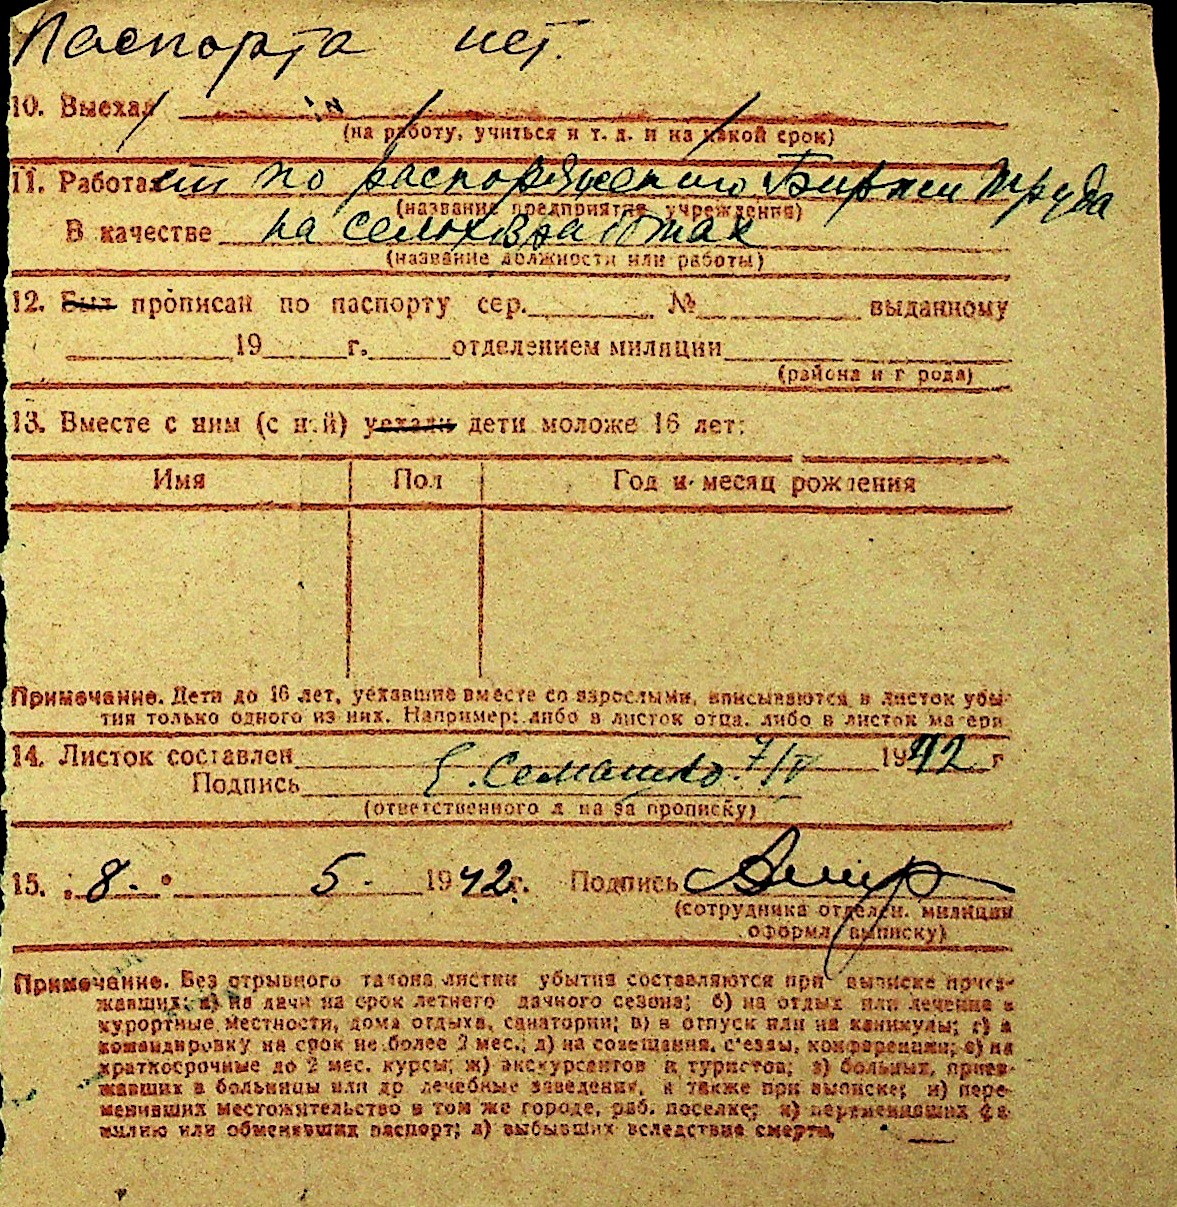 Паспорта нет.
10. Выехал
(на работу, учиться и т. д. и на какой срок)
11. Работает по распоряжению Биржи Труда
(название предприятия, учреждения)
В качестве на сельхозработах
(название должности или работы)
12. Был прописан по паспорту сер. № выданному
19 г. отделением милиции
(района и города)
13. Вместе с ним (с ней) уехали дети моложе 16 лет:
Имя Пол Год и месяц рождения
Примечание. Дети до 16 лет, уехавшие вместе со взрослыми, вписываются в листок убы-
тия только одного из них. Например: либо в листок отца, либо в листок матери
14. Листок составлен 7/V 1942 г
Подпись Е. Семашко
(ответственного лица за прописку)
15. "8." 5. 1942 г. Подпись
(сотрудника отделен. милиции
оформл. выписку)
Примечание. Без отрывного талона листки убытия составляются при выписке приез-
жавших: а) на дачи на срок летнего дачного сезона; б) на отдых или лечение в
курортные местности, дома отдыха, санатории; в) в отпуск или на каникулы; г) в
командировку на срок не более 2 мес.; д) на совещания, с'езды, конференции; е) на
краткосрочные до 2 мес. курсы; ж) экскурсантов и туристов; з) больных, приез-
жавших в больницы или др лечебные заведения, а также при выписке; и) пере-
менивших местожительство в том же городе, раб. поселке; к) переменивших фа-
милию или обменявших паспорт; л) выбывших вследствие смерти.